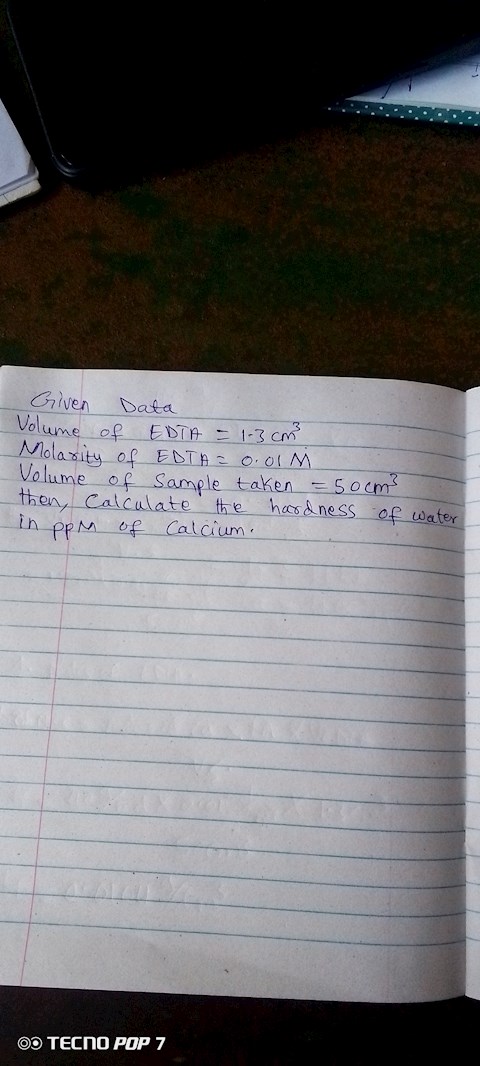 Given Data
Volume of EDTA = 1.3 cm³
Molarity of EDTA = 0.01 M
Volume of Sample taken = 50cm³
then, Calculate the hardness of water
in ppM of Calcium.
TECNO POP 7